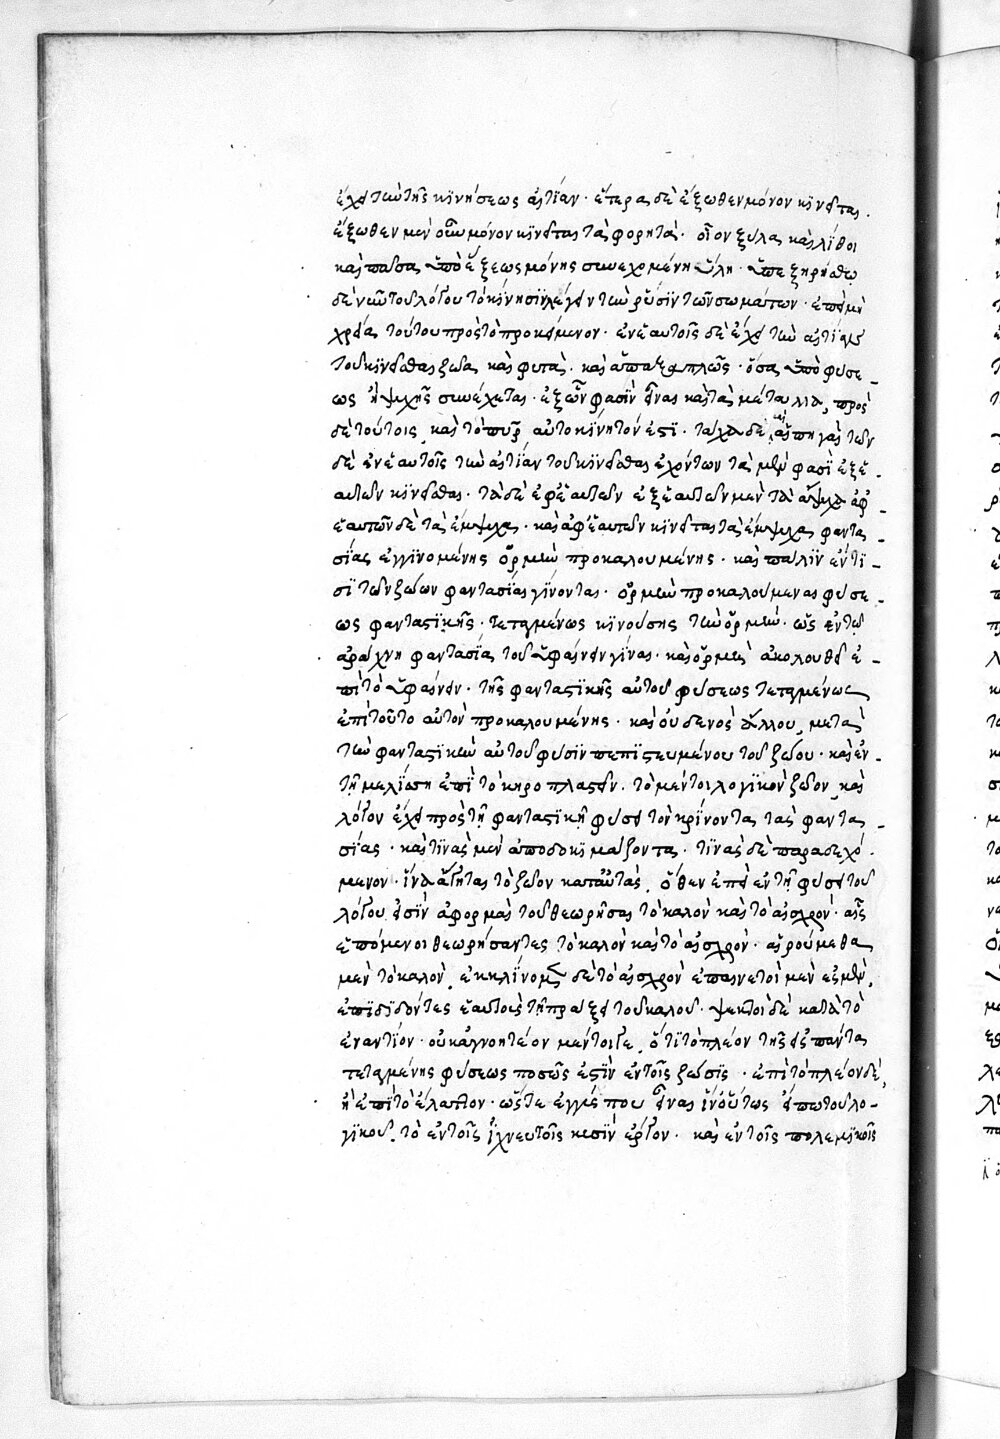 ἔχει τὴν τῆς κινήσεως αἰτίαν· ἕτερα δὲ ἔξωθεν μόνον κινεῖται.
ἔξωθεν μὲν οὖν μόνον κινεῖται τὰ φορητά· οἷον ξύλα καὶ λίθοι
καὶ πᾶσα ὑπὸ ἕξεως μόνης συνεχομένη ὕλη· ὑπεξῃρήσθω
δὲ νῦν τοῦ λόγου τὸ κίνησιν λέγειν τὴν ῥύσιν τῶν σωμάτων· ἐπεὶ μὴ
χρεία τούτου πρὸς τὸ προκείμενον· ἐν ἑαυτοῖς δὲ ἔχει τὴν αἰτίαν
τοῦ κινεῖσθαι ζῶα καὶ φυτά· καὶ ἁπαξαπλῶς· ὅσα ὑπὸ φύσε-
ως ἢ ψυχῆς συνέχεται· ἐξ ὧν φασὶν εἶναι καὶ τὰ μέταλλα, πρὸς
δὲ τούτοις καὶ τὸ πῦρ αὐτοκίνητόν ἐστι· τάχα δὲ καὶ αἱ πηγαί· τῶν
δὲ ἐν ἑαυτοῖς τὴν αἰτίαν τοῦ κινεῖσθαι ἐχόντων τὰ μέν φασι ἐξ ἑ-
αυτῶν κινεῖσθαι· τὰ δὲ ἀφ' ἑαυτῶν ἐξ ἑαυτῶν μὲν τὰ ἄψυχα ἀφ'
ἑαυτῶν δὲ τὰ ἔμψυχα· καὶ ἀφ' ἑαυτῶν κινεῖται τὰ ἔμψυχα φαντα-
σίας ἐγγινομένης ὁρμὴν προκαλουμένης· καὶ πάλιν ἔν τι-
σι τῶν ζώων φαντασίαι γίνονται· ὁρμὴν προκαλούμεναι φύσε-
ως φανταστικῆς· τεταγμένως κινούσης τὴν ὁρμήν· ὡς ἐν τῷ
ἀράχνῃ φαντασία τοῦ ὑφαίνειν γίνεται· καὶ ὁρμὴ ἀκολουθεῖ ἐ-
πὶ τὸ ὑφαίνειν· τῆς φανταστικῆς αὐτοῦ φύσεως τεταγμένως
ἐπὶ τοῦτο αὐτὸν προκαλουμένης· καὶ οὐδενὸς ἄλλου μετὰ
τὴν φανταστικὴν αὐτοῦ φύσιν πεπιστευμένου τοῦ ζώου· καὶ ἐν
τῇ μελίσσῃ ἐπὶ τὸ κηροπλαστεῖν. τὸ μέντοι λογικὸν ζῶον καὶ
λόγον ἔχει πρὸς τῇ φανταστικῇ φύσει τὸν κρίνοντα τὰς φαντα-
σίας· καὶ τινὰς μὲν ἀποδοκιμάζοντα· τινὰς δὲ παραδεχό-
μενον· ἵνα ἄγηται τὸ ζῶον κατ' αὐτάς, ὅθεν ἐπεὶ ἐν τῇ φύσει τοῦ
λόγου εἰσὶν ἀφορμαὶ τοῦ θεωρῆσαι τὸ καλὸν καὶ τὸ αἰσχρόν· αἷς
ἑπόμενοι θεωρήσαντες τὸ καλὸν καὶ τὸ αἰσχρόν· αἱρούμεθα
μὲν τὸ καλόν, ἐκκλίνομεν δὲ τὸ αἰσχρόν ἐπαινετοὶ μὲν ἐσμέν,
ἐπιδιδόντες ἑαυτοὺς τῇ πράξει τοῦ καλοῦ· ψεκτοὶ δὲ κατὰ τὸ
ἐναντίον· οὐκ ἀγνοητέον μέντοιγε, ὅτι τὸ πλέον τῆς εἰς πάντα
τεταγμένης φύσεως ποσῶς ἐστὶν ἐν τοῖς ζώοις· ἐπὶ τὸ πλέον δὲ,
ἢ ἐπὶ τὸ ἔλαττον· ὥστε ἐγγύς που εἶναι ἵν' οὕτως εἴπω τοῦ λο-
γικοῦ, τὸ ἐν τοῖς ἰχνευτοῖς κυσὶν ἔργον· καὶ ἐν τοῖς πολεμικοῖς